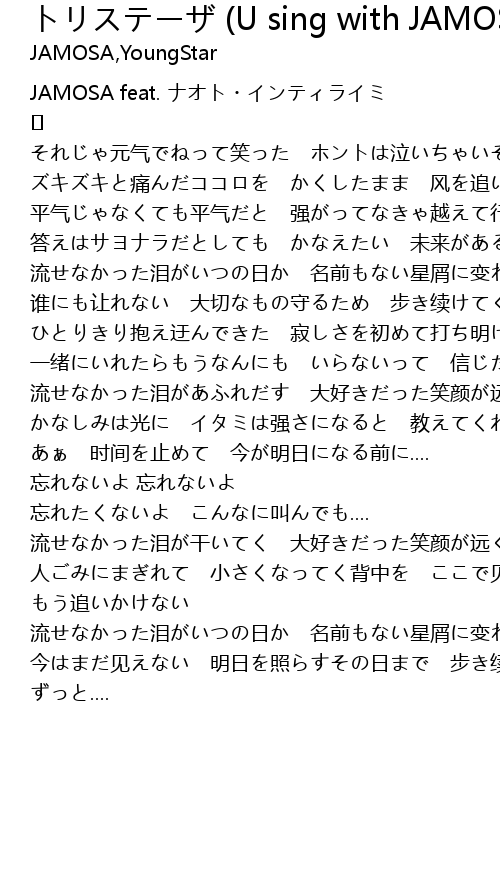 トリステーザ (U sing with JAMOS
JAMOSA,YoungStar
JAMOSA feat. ナオト・インティライミ
[]
それじゃ元气でねって笑った　ホントは泣いちゃいそ
ズキズキと痛んだココロを　かくしたまま　风を追い
平气じゃなくても平气だと　强がってなきゃ越えて行
答えはサヨナラだとしても　かなえたい　未来がある
流せなかった泪がいつの日か　名前もない星屑に变れ
谁にも让れない　大切なもの守るため　步き续けてく
ひとりきり抱え迂んできた　寂しさを初めて打ち明け
一绪にいれたらもうなんにも　いらないって　信じた
流せなかった泪があふれだす　大好きだった笑颜が远
かなしみは光に　イタミは强さになると　教えてくれ
あぁ　时间を止めて　今が明日になる前に....
忘れないよ 忘れないよ
忘れたくないよ　こんなに叫んでも....
流せなかった泪が干いてく　大好きだった笑颜が远く
人ごみにまぎれて　小さくなってく背中を　ここで见
もう追いかけない
流せなかった泪がいつの日か　名前もない星屑に变れ
今はまだ见えない　明日を照らすその日まで　步き续
ずっと....